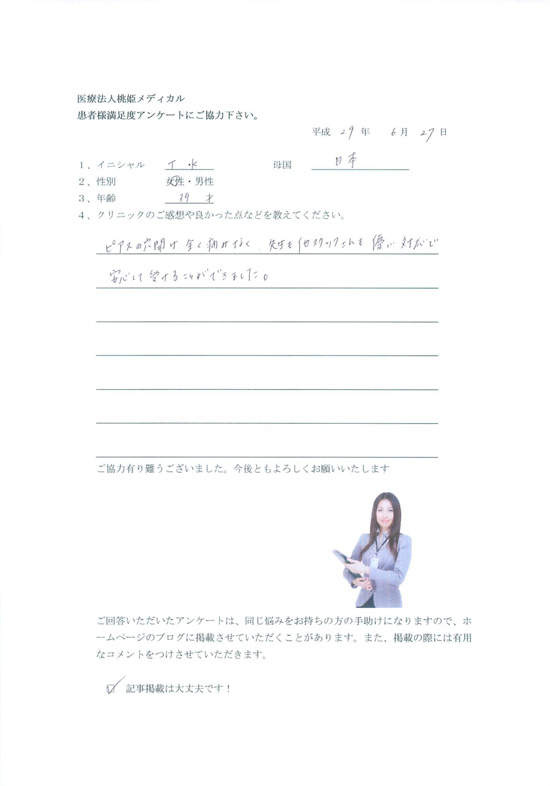 医療法人桃姫メディカル
患者様満足度アンケートにご協力下さい。
平成 29 年 6 月 27 日
1、イニシャル T 母国 日本
2、性別 女性・男性
3、年齢 39 才
4、クリニックのご感想や良かった点などを教えてください。
ピアスの穴開け全く痛みなく、先生も他スタッフさんも優しい対応で
安心して受けることができました。
ご協力有り難うございました。今後ともよろしくお願いいたします
ご回答いただいたアンケートは、同じ悩みをお持ちの方の手助けになりますので、ホ
ームページのブログに掲載させていただくことがあります。また、掲載の際には有用
なコメントをつけさせていただきます。
記事掲載は大丈夫です！